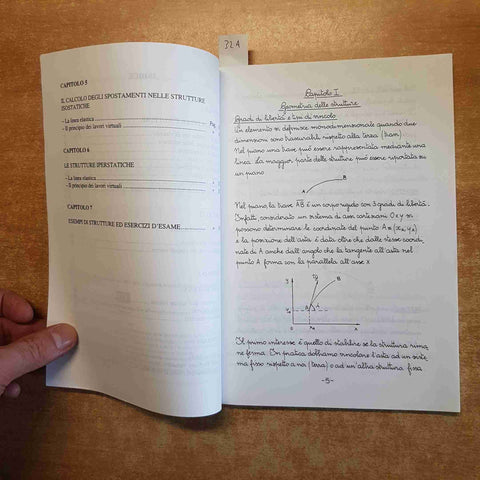 32A
CAPITOLO 5
IL CALCOLO DEGLI SPOSTAMENTI NELLE STRUTTURE
ISOSTATICHE
- La linea elastica
- Il principio dei lavori virtuali
Pag.
CAPITOLO 6
LE STRUTTURE IPERSTATICHE
- La linea elastica
- Il principio dei lavori virtuali
CAPITOLO 7
ESEMPI DI STRUTTURE ED ESERCIZI D'ESAME
Capitolo I
Geometria delle strutture
Gradi di libertà e tipi di vincolo
Un elemento si definisce monodimensionale quando due
dimensioni sono trascurabili rispetto alla terza (trave).
Nel piano una trave può essere rappresentata mediante una
linea. La maggior parte delle strutture può essere riportata su
un piano
A B
Nel piano la trave AB è un corpo rigido con 3 gradi di libertà.
Infatti considerato un sistema di assi cartesiani Oxy si
possono determinare le coordinate del punto A≡(xA, yA)
e la posizione dell'asta è data oltre che dalle stesse coordi_
nate di A anche dall'angolo che la tangente all'asta nel
punto A forma con la parallela all'asse x
y B
yA A
O xA x
Il primo interesse è quello di stabilire se la struttura rima_
ne ferma. In pratica dobbiamo vincolare l'asta ad un siste_
ma fisso rispetto a noi (terra) o ad un'altra struttura fissa
-5-